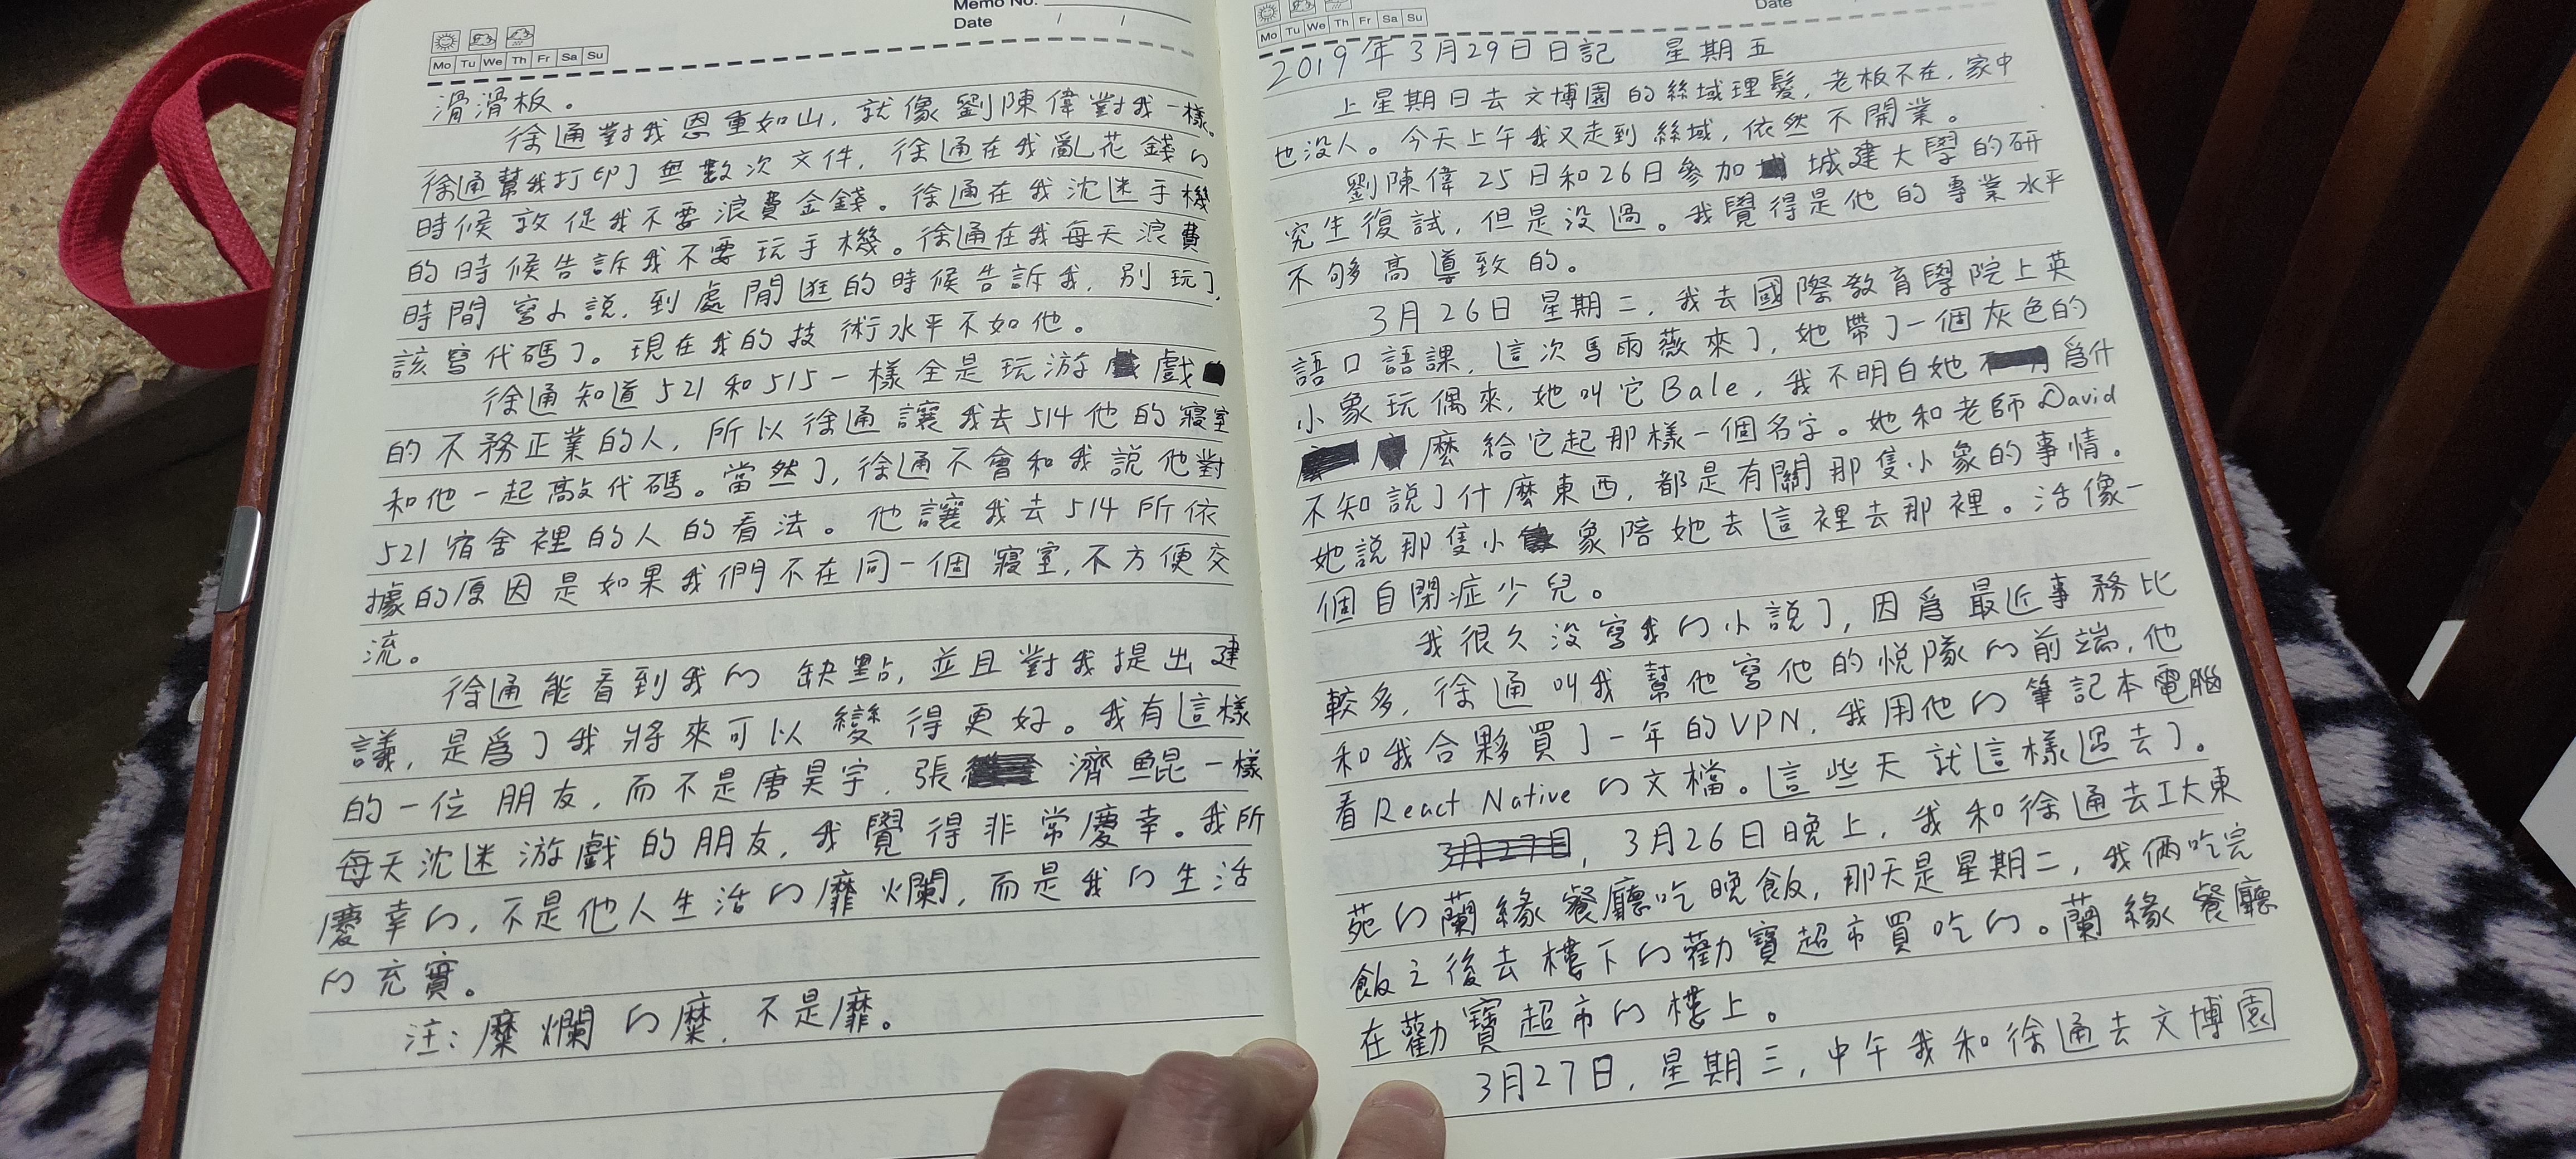 Memo No.
Date / /
Mo Tu We Th Fr Sa Su
滑滑板。
徐通對我恩重如山，就像劉陳偉對我一樣。
徐通幫我打印了無數次文件，徐通在我亂花錢的
時候敦促我不要浪費金錢。徐通在我沈迷手機
的時候告訴我不要玩手機。徐通在我每天浪費
時間寫小說，到處閒逛的時候告訴我，別玩了，
該寫代碼了。現在我的技術水平不如他。
徐通知道521和515一樣全是玩游戲
的不務正業的人，所以徐通讓我去514他的寢室
和他一起敲代碼。當然了，徐通不會和我說他對
521宿舍裡的人的看法。他讓我去514所依
據的原因是如果我們不在同一個寢室，不方便交
流。
徐通能看到我的缺點，並且對我提出建
議，是爲了我將來可以變得更好。我有這樣
的一位朋友，而不是唐昊宇，張濟鯤一樣
每天沈迷游戲的朋友，我覺得非常慶幸。我所
慶幸的，不是他人生活的靡爛，而是我的生活
的充實。
注：糜爛的糜，不是靡。
Date
Mo Tu We Th Fr Sa Su
2019年3月29日日記 星期五
上星期日去文博園的絲域理髮，老板不在，家中
也没人。今天上午我又走到絲域，依然不開業。
劉陳偉25日和26日參加城建大學的研
究生復試，但是没過。我覺得是他的專業水平
不够高導致的。
3月26日星期二，我去國際教育學院上英
語口語課，這次馬雨薇來了，她帶了一個灰色的
小象玩偶來，她叫它Bale，我不明白她爲什
麼給它起那樣一個名字。她和老師David
不知説了什麼東西，都是有關那隻小象的事情。
她説那隻小象陪她去這裡去那裡。活像一
個自閉症少兒。
我很久没寫我的小説了，因爲最近事務比
較多，徐通叫我幫他寫他的悦隊的前端，他
和我合夥買了一年的VPN，我用他的筆記本電腦
看React Native的文檔。這些天就這樣過去了。
3月27日，3月26日晚上，我和徐通去工大東
苑的蘭緣餐廳吃晚飯，那天是星期二，我倆吃完
飯之後去樓下的勸寶超市買吃的。蘭緣餐廳
在勸寶超市的樓上。
3月27日，星期三，中午我和徐通去文博園